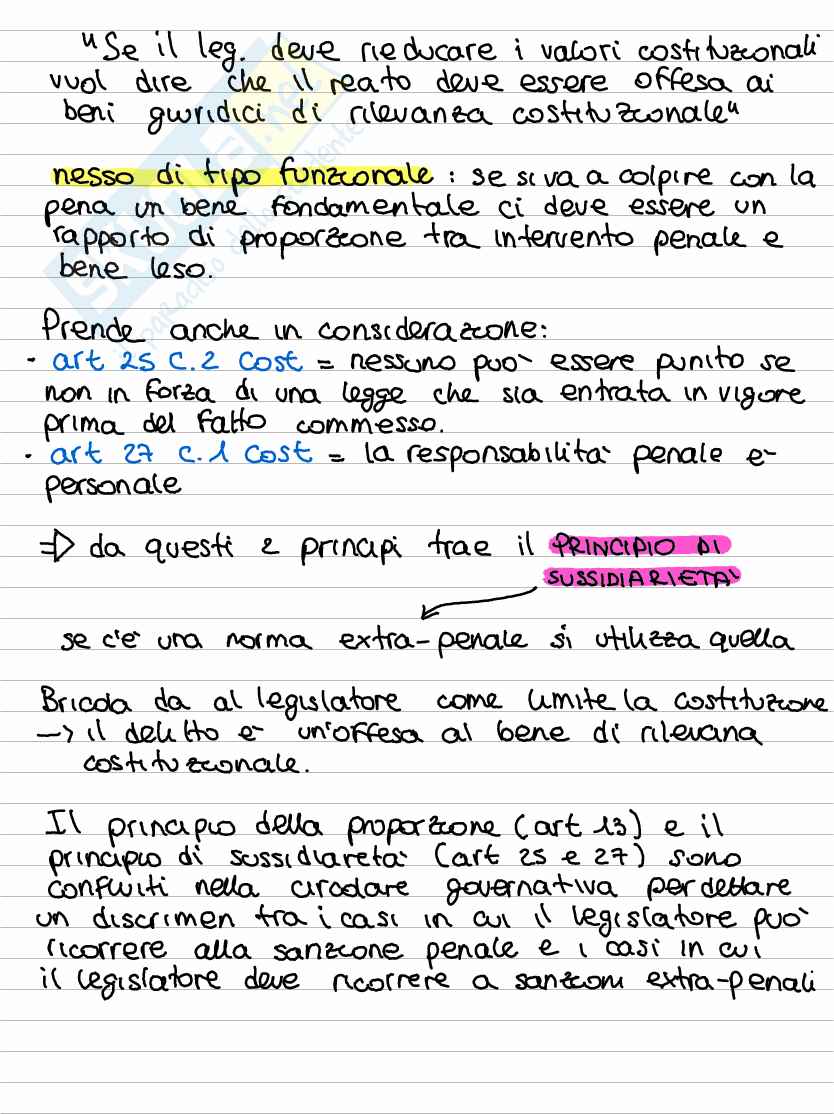 "Se il leg. deve rieducare i valori costituzionali
vuol dire che il reato deve essere offesa ai
beni giuridici di rilevanza costituzionale"
nesso di tipo funzionale : se si va a colpire con la
pena un bene fondamentale ci deve essere un
rapporto di proporzione tra intervento penale e
bene leso.
Prende anche in considerazione:
- art 25 c.2 Cost = nessuno può essere punito se
non in forza di una legge che sia entrata in vigore
prima del fatto commesso.
- art 27 c.1 Cost = la responsabilità penale è
personale
=> da questi 2 principi trae il PRINCIPIO DI
SUSSIDIARIETÀ
se c'è una norma extra-penale si utilizza quella
Bricola da al legislatore come limite la costituzione
-> il delitto è un'offesa al bene di rilevana
costituzionale.
Il principio della proporzione (art 13) e il
principio di sussidiaretà (art 25 e 27) sono
confluiti nella circolare governativa per dettare
un discrimen tra i casi in cui il legislatore può
ricorrere alla sanzione penale e i casi in cui
il legislatore deve ricorrere a sanzioni extra-penali